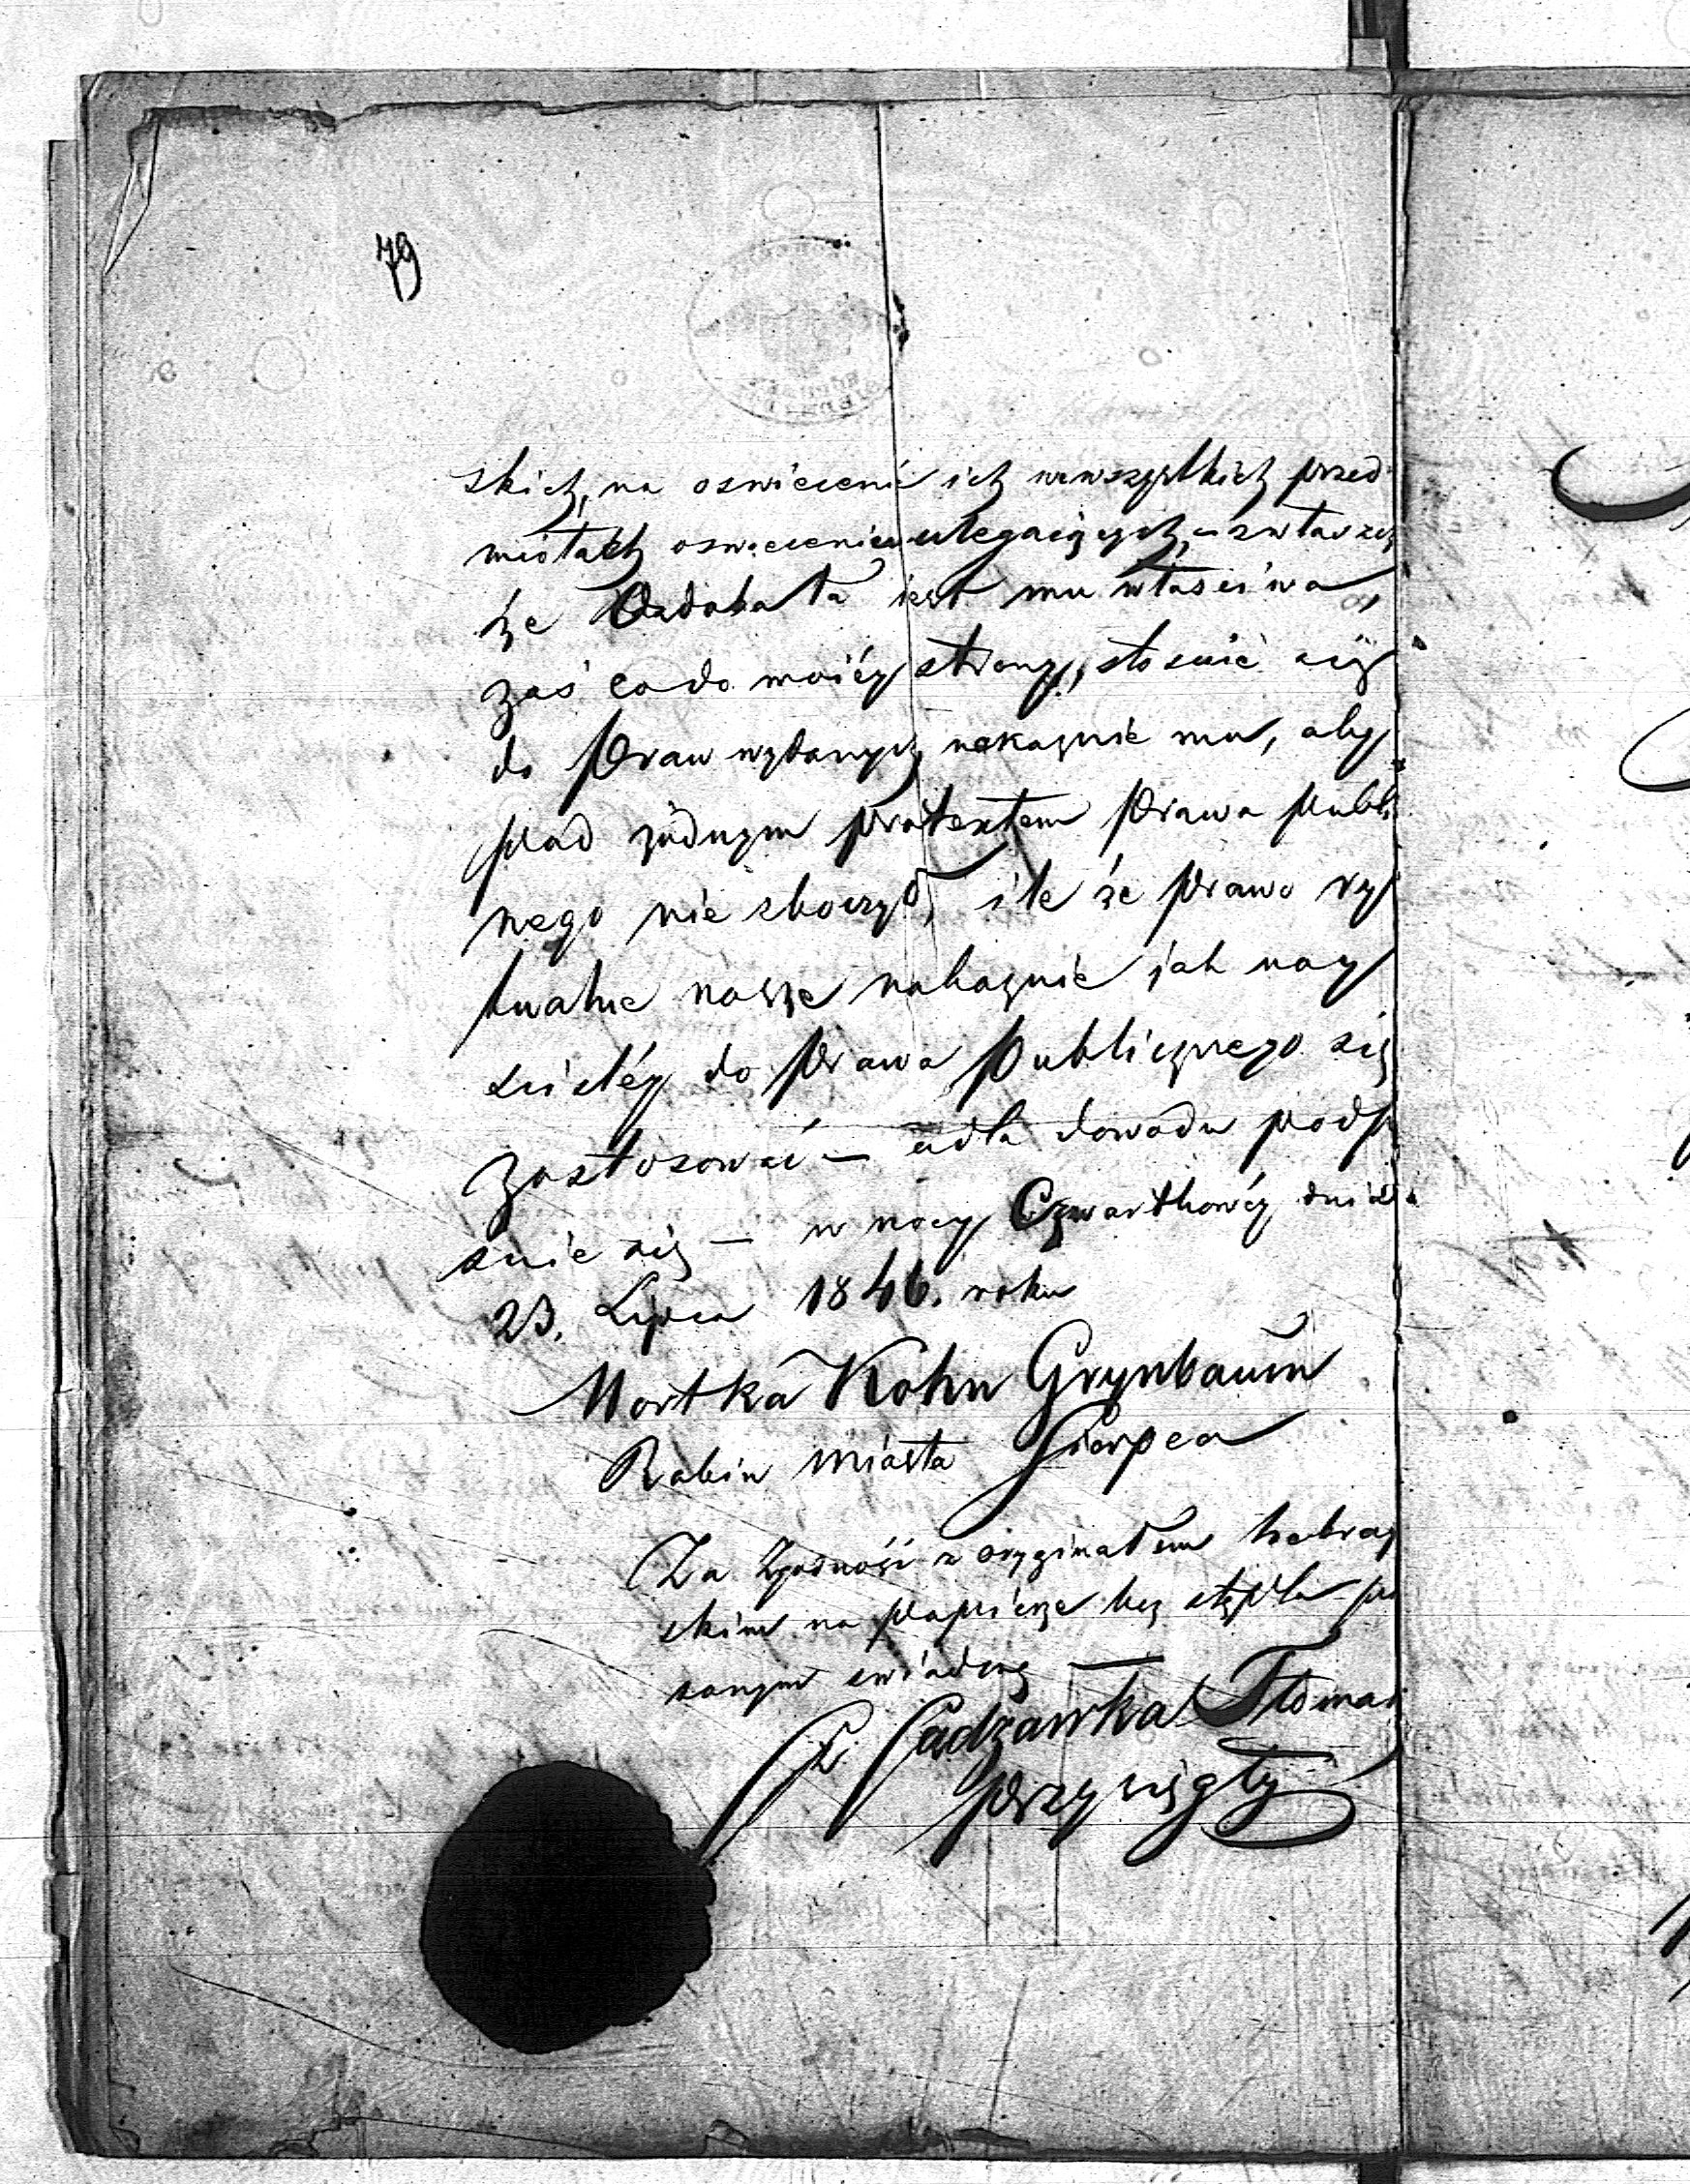 79
skich, na oswiecenie ich wewszystkich przed
miotach oswiecenia ulegaiących, - zwłaszcz
że Ozdoba ta iest mu właściwa,
zaś codo moiéy strony, stosuié się
do Praw wydanych nakazuié mu, aby
pod żadnym pratextem Prawa Publi
nego nie zboczył, ile że Prawo ry
tualne nasze nakazuié jak nay
sciśléy do Prawa Publicznego się
zastosować - adla dowodu podpi
suie się - w nocy Czwartkowéy dnia
23. Lipca 1846. roku
Mortka Kohn Grynbaum
Rabin Miasta Sierpca
Za Zgodność z oryginałem hebray
skim na papierze bez stępla pi
sanym swiadczę
Sadzawka Tłomac
Przysięgły